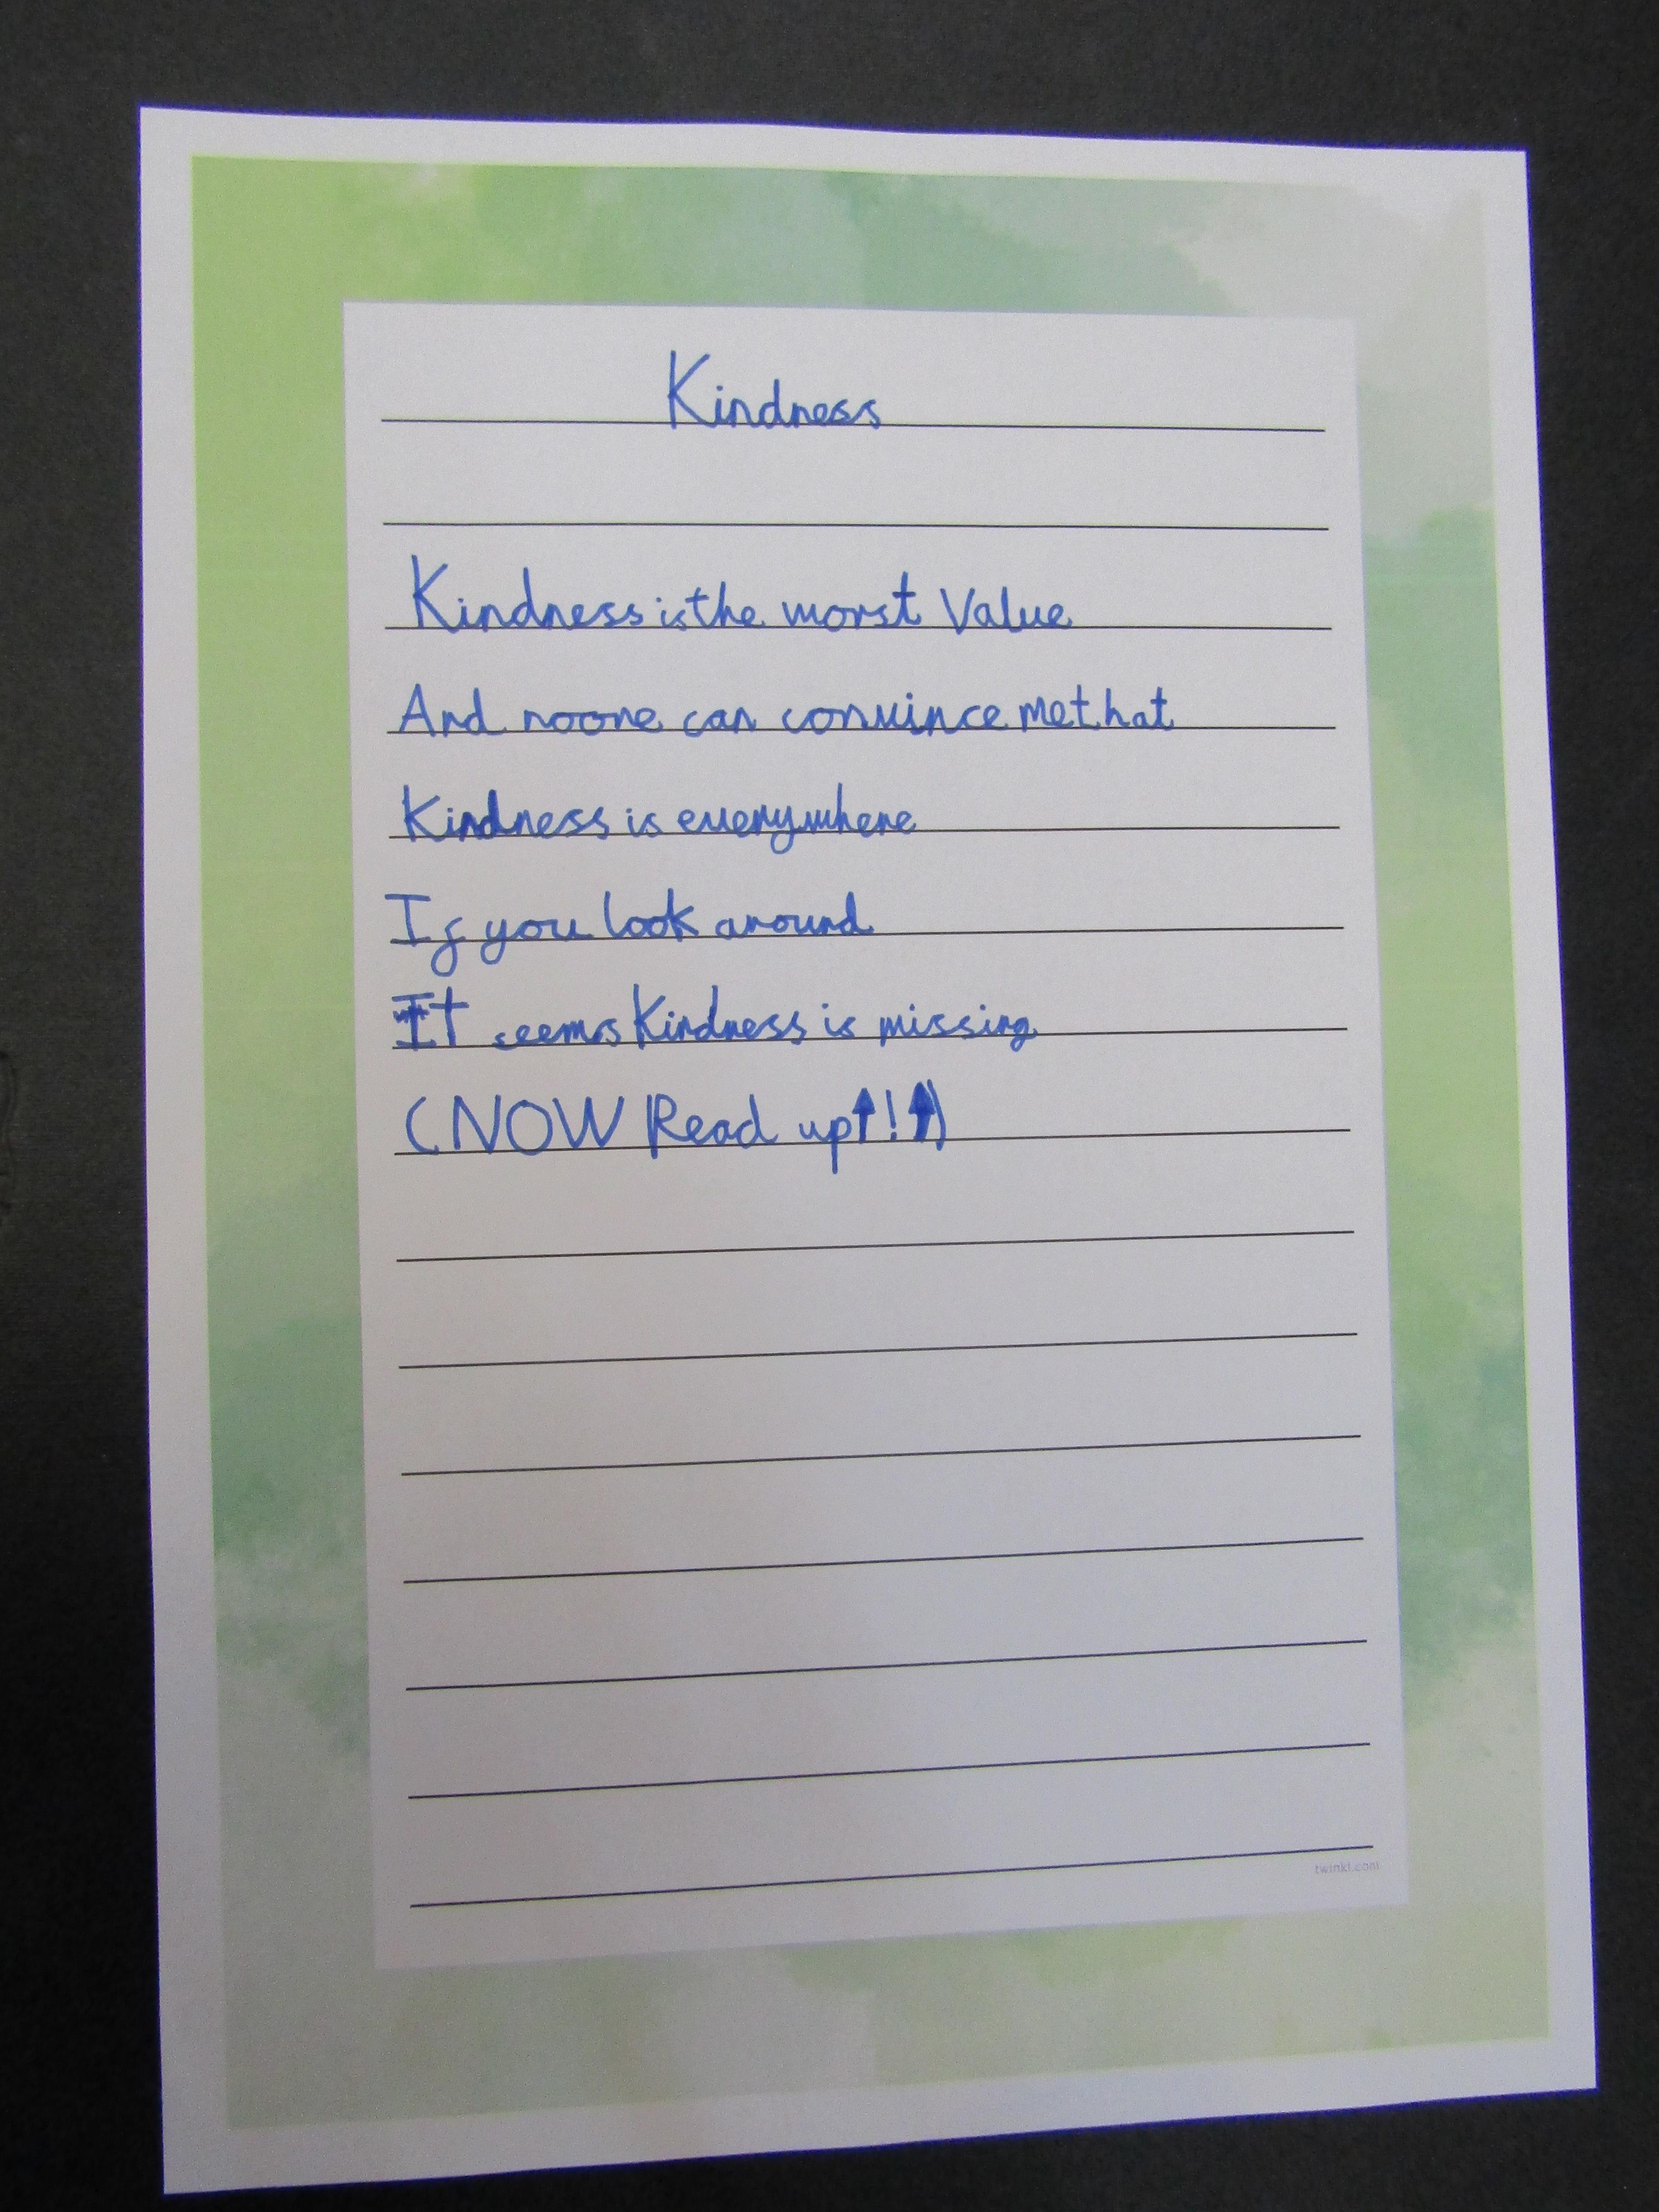 Kindness
Kindness is the worst Value
And noone can convince me that
Kindness is everywhere
If you look around
It seems Kindness is missing
(NOW Read up↑!↑)
twinkl.com